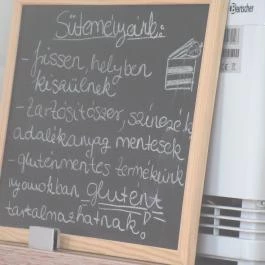 Süteményeink:
- frissen, helyben
készülnek
- tartósítószer, színezék
adalékanyag mentesek
- gluténmentes termékeink
nyomokban glutént
tartalmazhatnak!
Bartscher